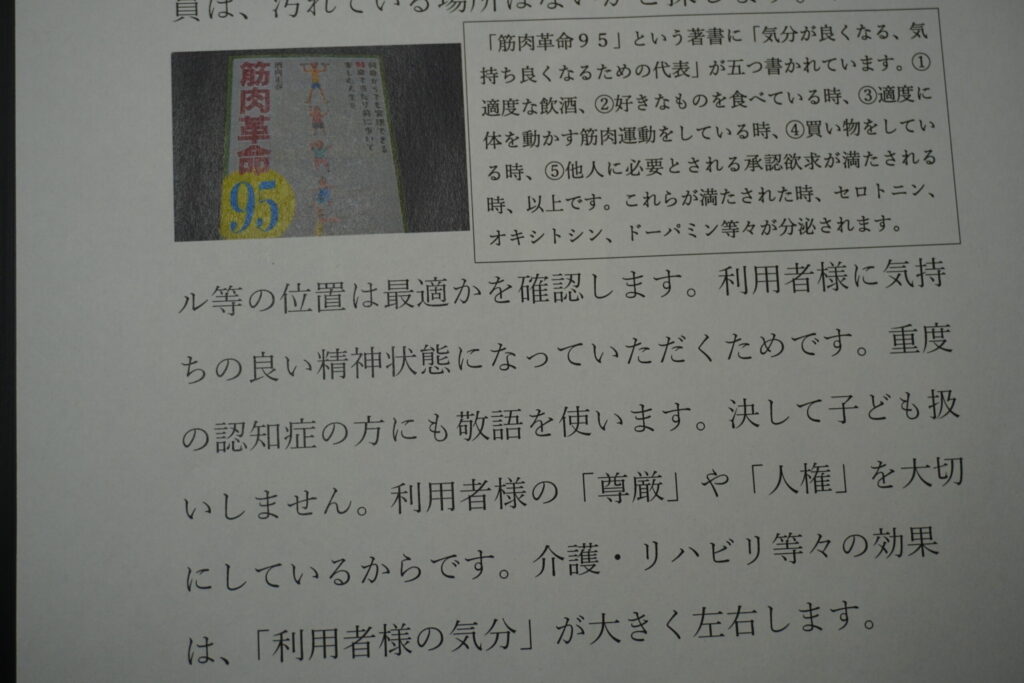 員は、汚れている場所はないかと探します。
筋肉革命
95
「筋肉革命９５」という著書に「気分が良くなる、気
持ち良くなるための代表」が五つ書かれています。①
適度な飲酒、②好きなものを食べている時、③適度に
体を動かす筋肉運動をしている時、④買い物をしてい
る時、⑤他人に必要とされる承認欲求が満たされる
時、以上です。これらが満たされた時、セロトニン、
オキシトシン、ドーパミン等々が分泌されます。
ル等の位置は最適かを確認します。利用者様に気持
ちの良い精神状態になっていただくためです。重度
の認知症の方にも敬語を使います。決して子ども扱
いしません。利用者様の「尊厳」や「人権」を大切
にしているからです。介護・リハビリ等々の効果
は、「利用者様の気分」が大きく左右します。